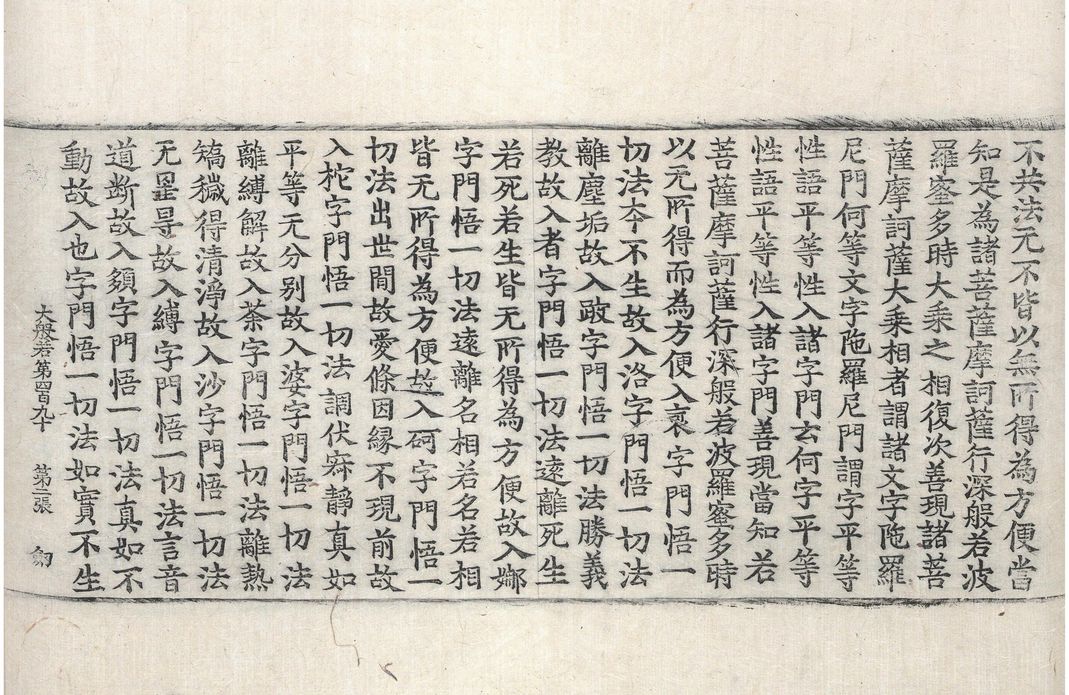 不共法无不皆以無所得為方便當
知是為諸菩薩摩訶薩行深般若波
羅蜜多時大乘之相復次善現諸菩
薩摩訶薩大乘相者謂諸文字陁羅
尼門何等文字陁羅尼門謂字平等
性語平等性入諸字門云何字平等
性語平等性入諸字門善現當知若
菩薩摩訶薩行深般若波羅蜜多時
以无所得而為方便入裒字門悟一
切法夲不生故入洛字門悟一切法
離塵垢故入跛字門悟一切法勝義
教故入者字門悟一切法遠離死生
若死若生皆无所得為方便故入娜
字門悟一切法遠離名相若名若相
皆无所得為方便故入砢字門悟一
切法出世間故愛條因縁不現前故
入柁字門悟一切法調伏寂靜真如
平等无分别故入婆字門悟一切法
離縛解故入荼字門悟一切法離熱
矯穢得清淨故入沙字門悟一切法
无罣㝵故入縛字門悟一切法言音
道断故入頞字門悟一切法真如不
動故入也字門悟一切法如實不生
大般若第四百九十 第二張